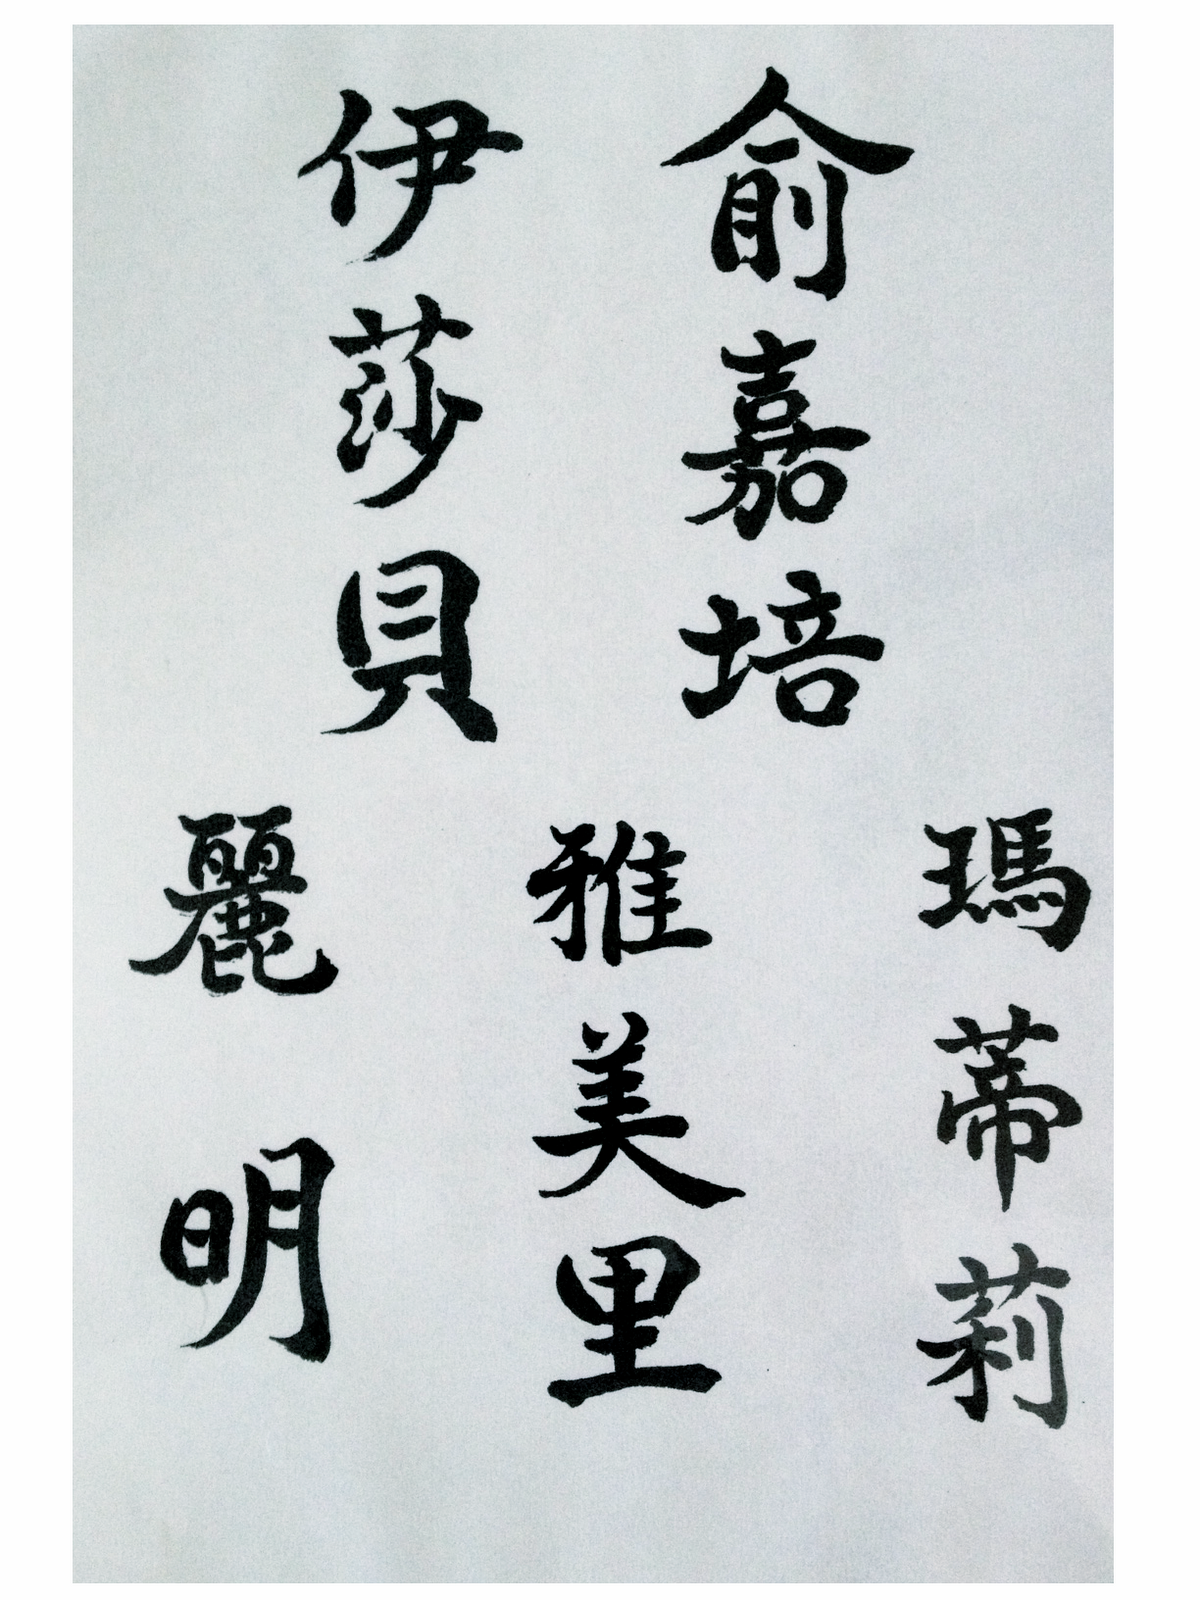 俞嘉培
伊莎貝
瑪蒂莉
雅美里
麗明